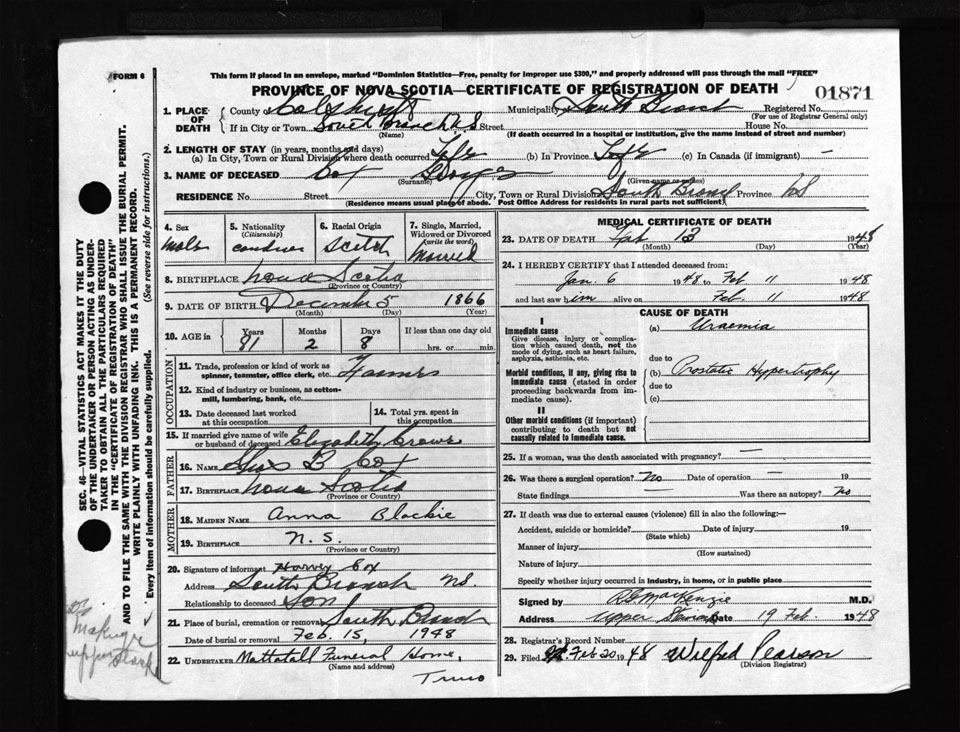 FORM 6
This form if placed in an envelope, marked "Dominion Statistics—Free, penalty for improper use $300," and properly addressed will pass through the mail "FREE"
PROVINCE OF NOVA SCOTIA—CERTIFICATE OF REGISTRATION OF DEATH
01871
1. PLACE OF DEATH County Municipality South Branch Registered No.
(For use of Registrar General only)
If in City or Town South Branch N S Street House No.
(Name) (If death occurred in a hospital or institution, give the name instead of street and number)
2. LENGTH OF STAY (in years, months and days)
(a) In City, Town or Rural Division where death occurred Life (b) In Province Life (c) In Canada (if immigrant) —
3. NAME OF DECEASED Cox George
(Surname) (Given name or names)
RESIDENCE No. Street City, Town or Rural Division South Branch Province N S
(Residence means usual place of abode. Post Office Address for residents in rural parts not sufficient)
4. Sex
Male
5. Nationality
(Citizenship)
6. Racial Origin
Scotch
7. Single, Married, Widowed or Divorced
(write the word)
Married
8. BIRTHPLACE Nova Scotia
(Province or Country)
9. DATE OF BIRTH December 5 1866
(Month) (Day) (Year)
10. AGE in Years Months Days If less than one day old
81 2 8 hrs. or min.
OCCUPATION
11. Trade, profession or kind of work as
spinner, teamster, office clerk, etc. Farmer
12. Kind of industry or business, as cotton-
mill, lumbering, bank, etc.
13. Date deceased last worked
at this occupation
14. Total yrs. spent in
this occupation
15. If married give name of wife
or husband of deceased Elizabeth Crowe
FATHER
16. NAME B Cox
17. BIRTHPLACE Nova Scotia
(Province or Country)
MOTHER
18. MAIDEN NAME Anna Blackie
19. BIRTHPLACE N. S.
(Province or Country)
20. Signature of informant Harvey Cox
Address South Branch N.S.
Relationship to deceased Son
21. Place of burial, cremation or removal South Branch
Date of burial or removal Feb. 15, 1948
22. UNDERTAKER Mattatall Funeral Home,
(Name and address)
Truro
MEDICAL CERTIFICATE OF DEATH
23. DATE OF DEATH Feb 13 1948
(Month) (Day)
24. I HEREBY CERTIFY that I attended deceased from:
Jan. 6 1948 to Feb 11 1948
and last saw him alive on Feb. 11 1948
CAUSE OF DEATH
I
Immediate cause
Give disease, injury or complica-
tion which caused death, not the
mode of dying, such as heart failure,
asphyxia, asthenia, etc.
(a) Uraemia
due to
Morbid conditions, if any, giving rise to
immediate cause (stated in order
proceeding backwards from im-
mediate cause).
(b) Prostatic Hypertrophy
due to
(c)
II
Other morbid conditions (if important)
contributing to death but not
causally related to immediate cause.
25. If a woman, was the death associated with pregnancy? —
26. Was there a surgical operation? No Date of operation — 19
State findings — Was there an autopsy? No
27. If death was due to external causes (violence) fill in also the following:—
Accident, suicide or homicide? Date of injury 19
(State which)
Manner of injury
(How sustained)
Nature of injury
Specify whether injury occurred in industry, in home, or in public place
Signed by MacKenzie M.D.
Address Upper Date 19 Feb. 1948
28. Registrar's Record Number
29. Filed Feb 20 1948 Wilfred Pearson
(Division Registrar)
SEC. 46—VITAL STATISTICS ACT MAKES IT THE DUTY
OF THE UNDERTAKER OR PERSON ACTING AS UNDER-
TAKER TO OBTAIN ALL THE PARTICULARS REQUIRED
IN THE "CERTIFICATE OF REGISTRATION OF DEATH"
AND TO FILE THE SAME WITH THE DIVISION REGISTRAR WHO SHALL ISSUE THE BURIAL PERMIT.
WRITE PLAINLY WITH UNFADING INK. THIS IS A PERMANENT RECORD.
Every item of information should be carefully supplied. (See reverse side for instructions.)
upper